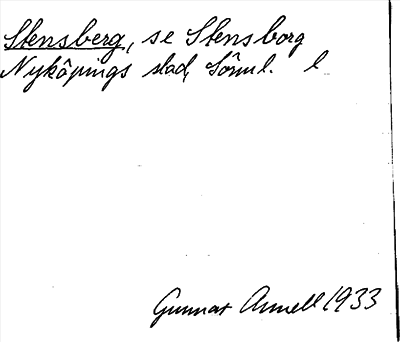 Stensberg, se Stensborg
Nyköpings stad, Sörml. l
Gunnar Annell 1933